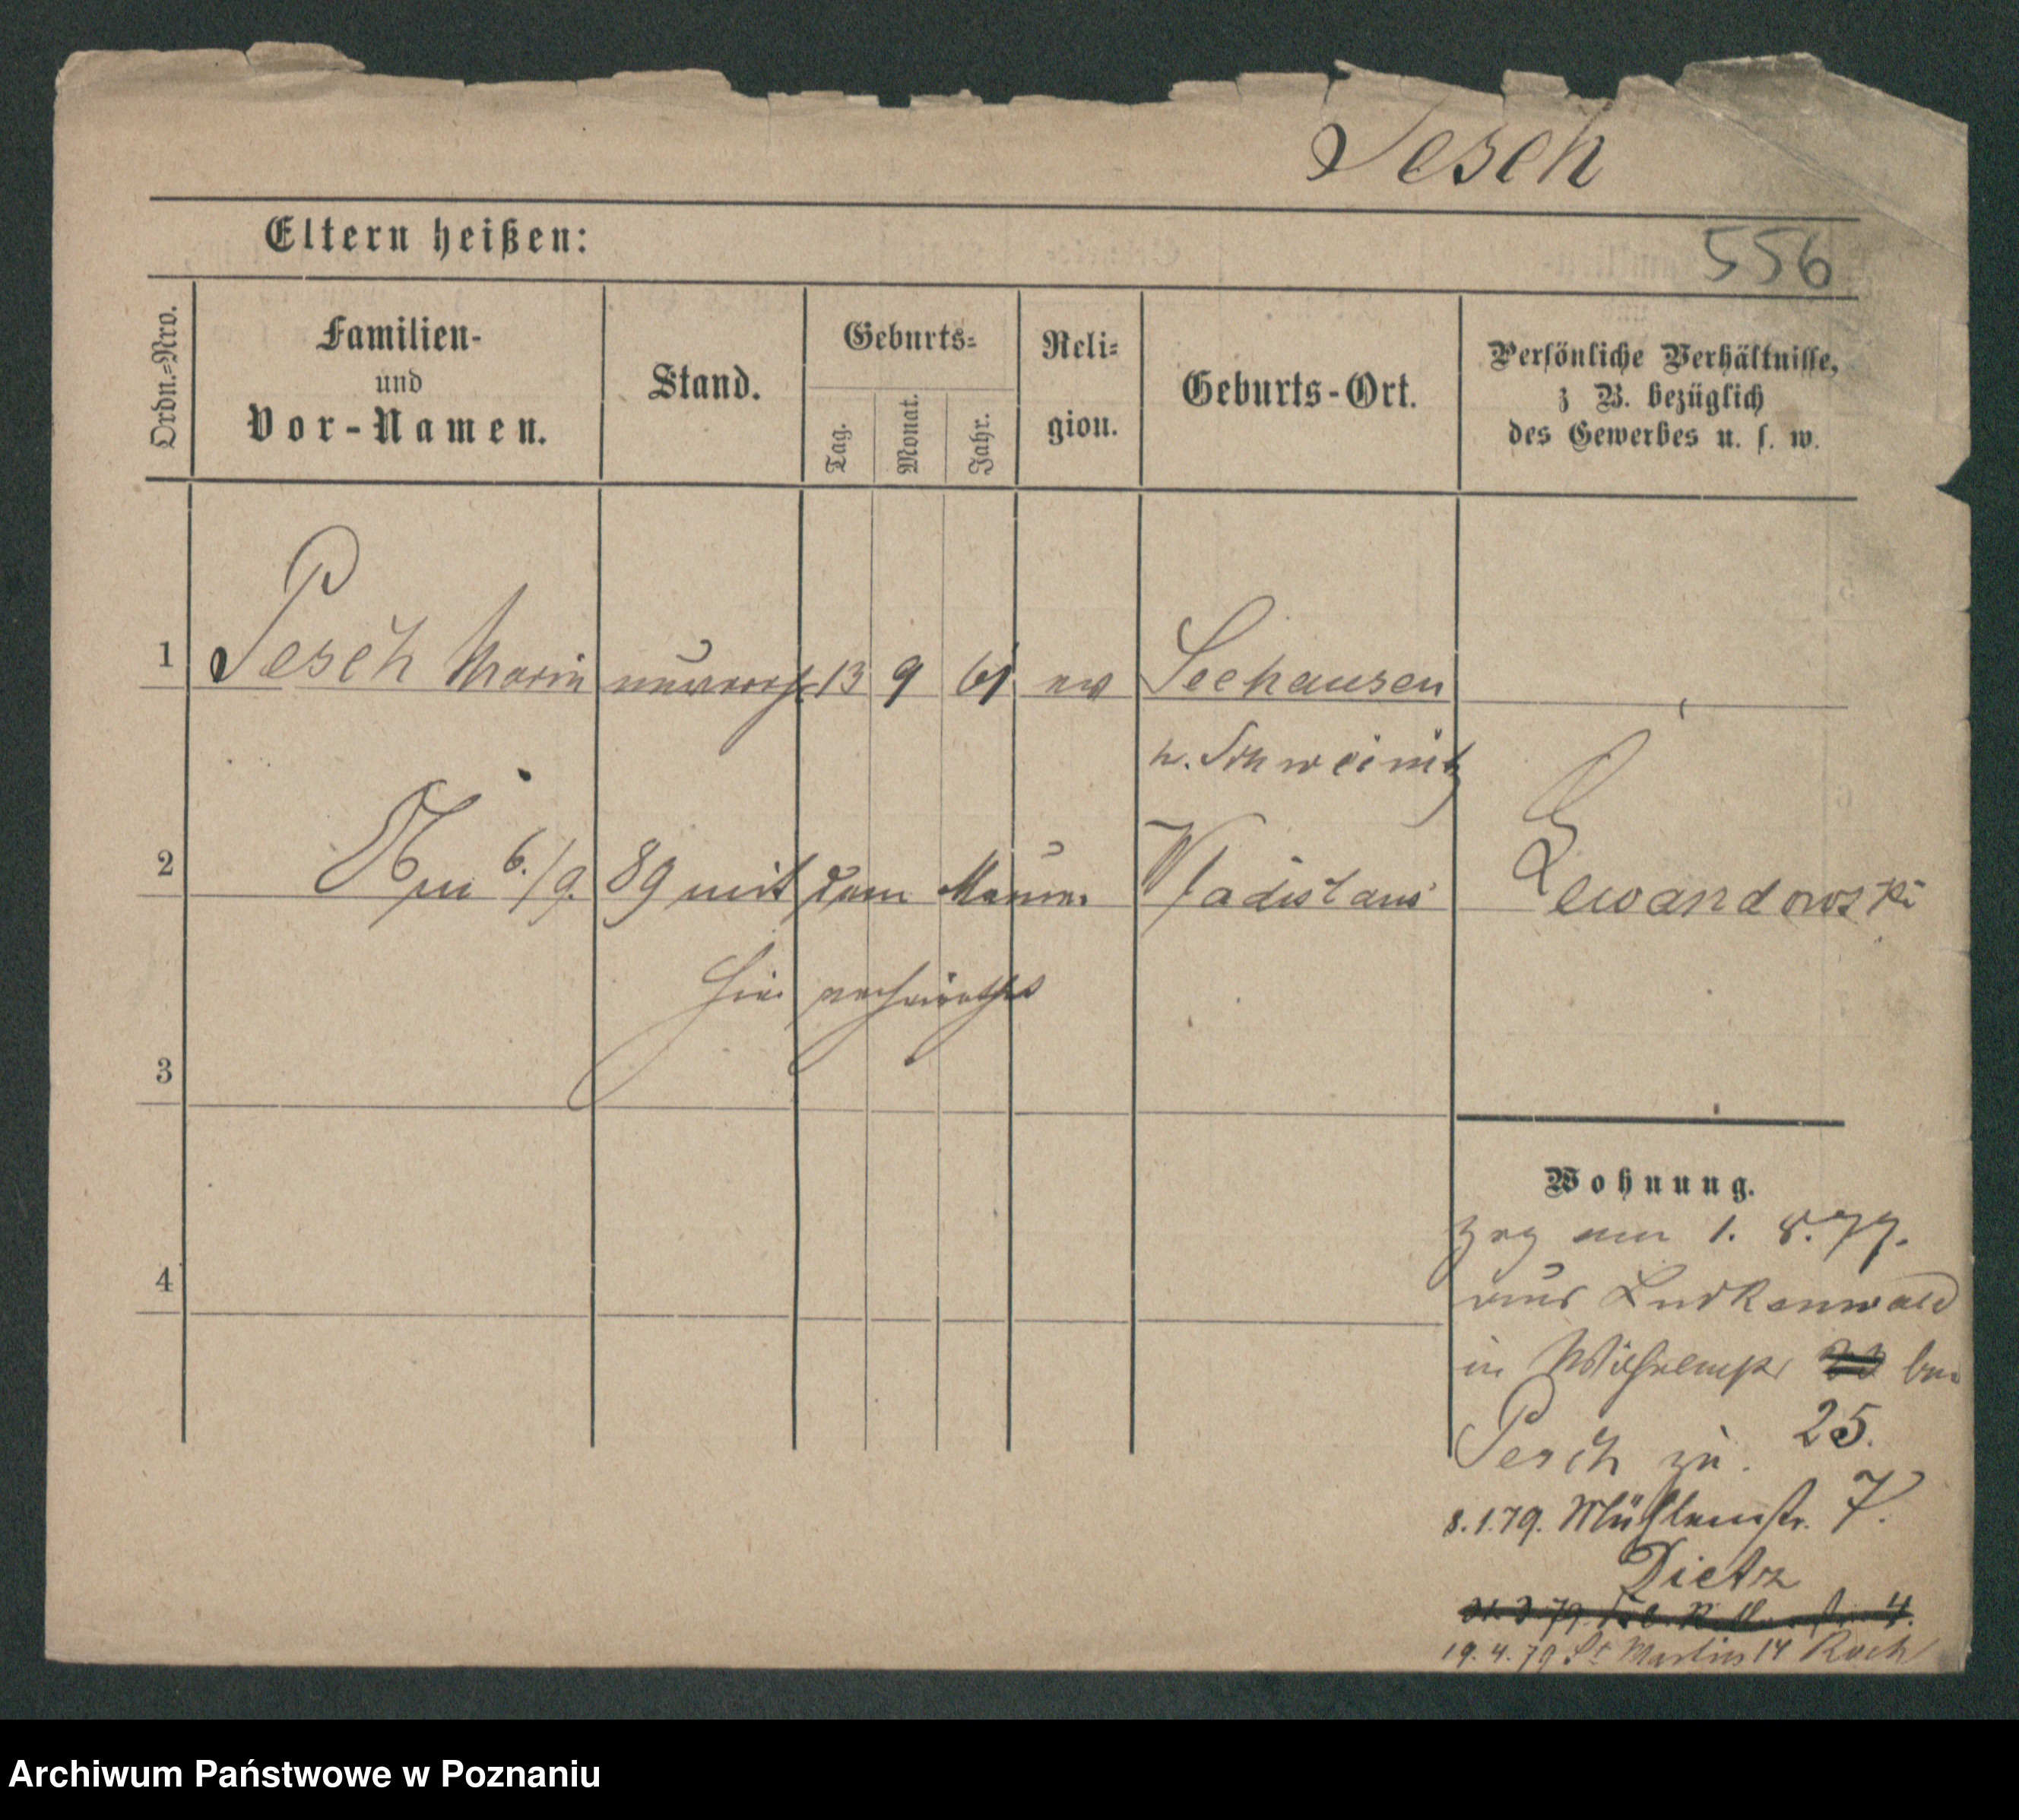 Pesch
Eltern heißen:
556
Ordn.-Nro.
Familien-
und
Vor-Namen.
Stand.
Geburts-
Tag.
Monat.
Jahr.
Reli-
gion.
Geburts-Ort.
Persönliche Verhältnisse,
z B. bezüglich
des Gewerbes u. s. w.
1 Pesch Marie unverh. 13 9 61 ev Seehausen
n. Schweinitz
2 Am 6./9. 89 mit dem Maurer Wladislaus Lewandowski
hier verheirathet
3
4
Wohnung.
zog am 1. 8. 77.
aus Luckenwald
in Wilhelmpl bei
Pesch zu. 25.
8.1.79. Mühlenstr. 7.
Dietz
19.4.79 St Martin 14 Koch
Archiwum Państwowe w Poznaniu